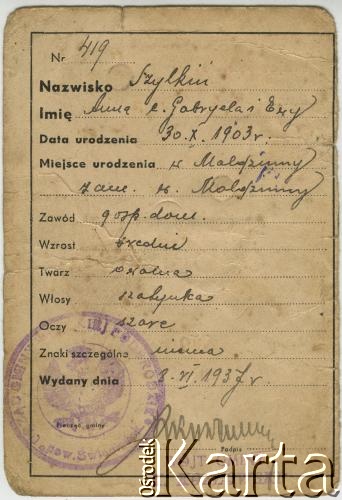 Nr 419
Nazwisko Szylkiń
Imię Anna c. Gabryela i Ewy
Data urodzenia 30.X.1903 r.
Miejsce urodzenia w Małożynny
zam. w Małożynny
Zawód gosp. dom.
Wzrost średni
Twarz owalna
Włosy szatynka
Oczy szare
Znaki szczególne niema
Wydany dnia 8.VI.1937 r.
Pieczęć gminy
Podpis
Ośrodek
Karta